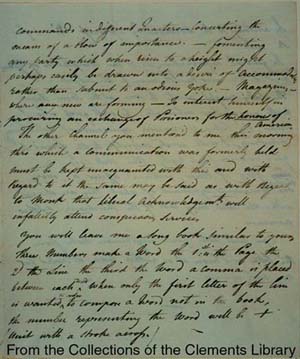 commands in different quarters – Concerting the
means of a blow of importance – fomenting
any party which when risen to a height might
perhaps easily be drawn into a desire of accommodation
rather than submit to an odious Yoke – Magazines,
where any new are forming – To interest himself in
procuring an exchange of Prisoners for the honour of
America
The other Channel you mentioned to me this morning
thro' which a communication was formerly held
must be kept unacquainted with this and with
regard to it the same may be said as with regard
to Monk that liberal acknowledgmts. will
infallibly attend conspicuous services
You will leave me a long book similar to yours.
Three Numbers make a Word the 1st. is the Page the
2d. the Line the third the Word a comma is placed
between each when only the first letter of the line
is wanted, to compose a Word not in the book,
the number representing the Word will be +
Unit with a stroke across 1
From the Collections of the Clements Library